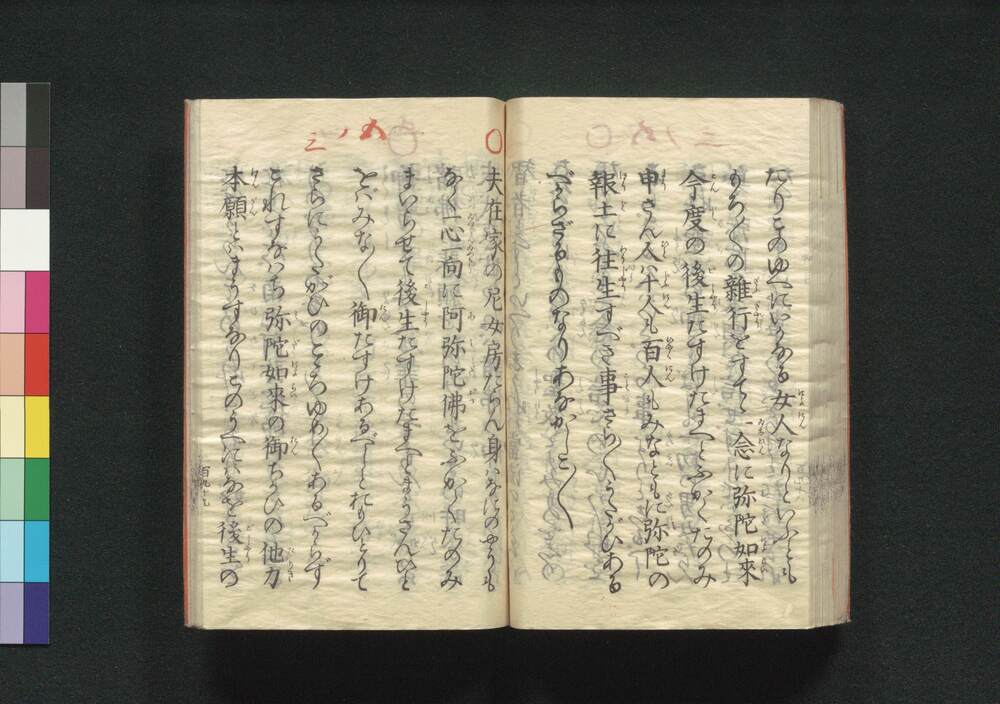 たりこのゆへにいかなる女人なりといふとも
もろ〳〵の雜行をすてゝ一念に弥陀如來
今度の後生たすけたまへとふかくたのみ
申さん人は十人も百人もみなともに弥陀の
報土に往生すべき事さら〳〵うたがひある
べからざるものなりあなかしこ〳〵
五ノ三
夫在家の尼女房たらん身はなにのやうも
なく一心一向に阿弥陀佛をふかくたのみ
まいらせて後生たすけたまへとまうさんひと
をはみな〳〵御たすけあるべしとおもひとりて
さらにうたがひのこころゆめ〳〵あるべからず
これすなはち弥陀如來の御ちかひの他力
本願とはまうすなりこのうへにはなを後生の